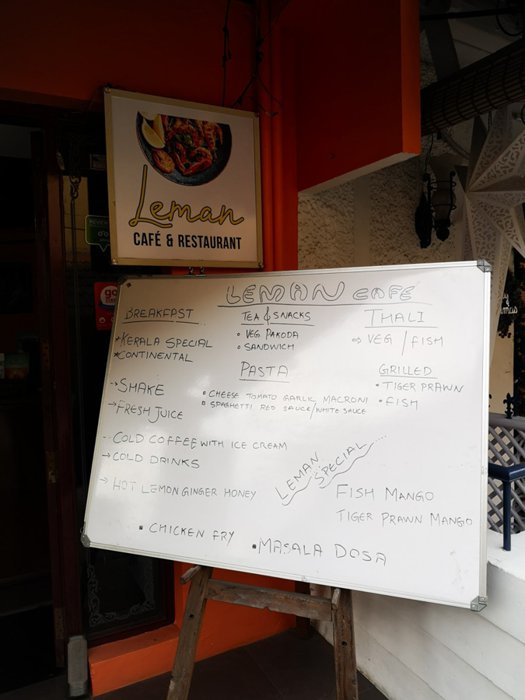 Leman
CAFÉ & RESTAURANT
LEMAN CAFE
BREAKFAST
KERALA SPECIAL
CONTINENTAL
→SHAKE
→FRESH JUICE
→COLD COFFEE WITH ICE CREAM
→COLD DRINKS
→HOT LEMON GINGER HONEY
TEA & SNACKS
• VEG PAKODA
• SANDWICH
PASTA
• CHEESE TOMATO GARLIC MACRONI
• SPAGHETTI RED SAUCE/WHITE SAUCE
THALI
⇒ VEG / FISH
GRILLED
• TIGER PRAWN
• FISH
LEMAN
SPECIAL
FISH MANGO
TIGER PRAWN MANGO
• CHICKEN FRY
• MASALA DOSA